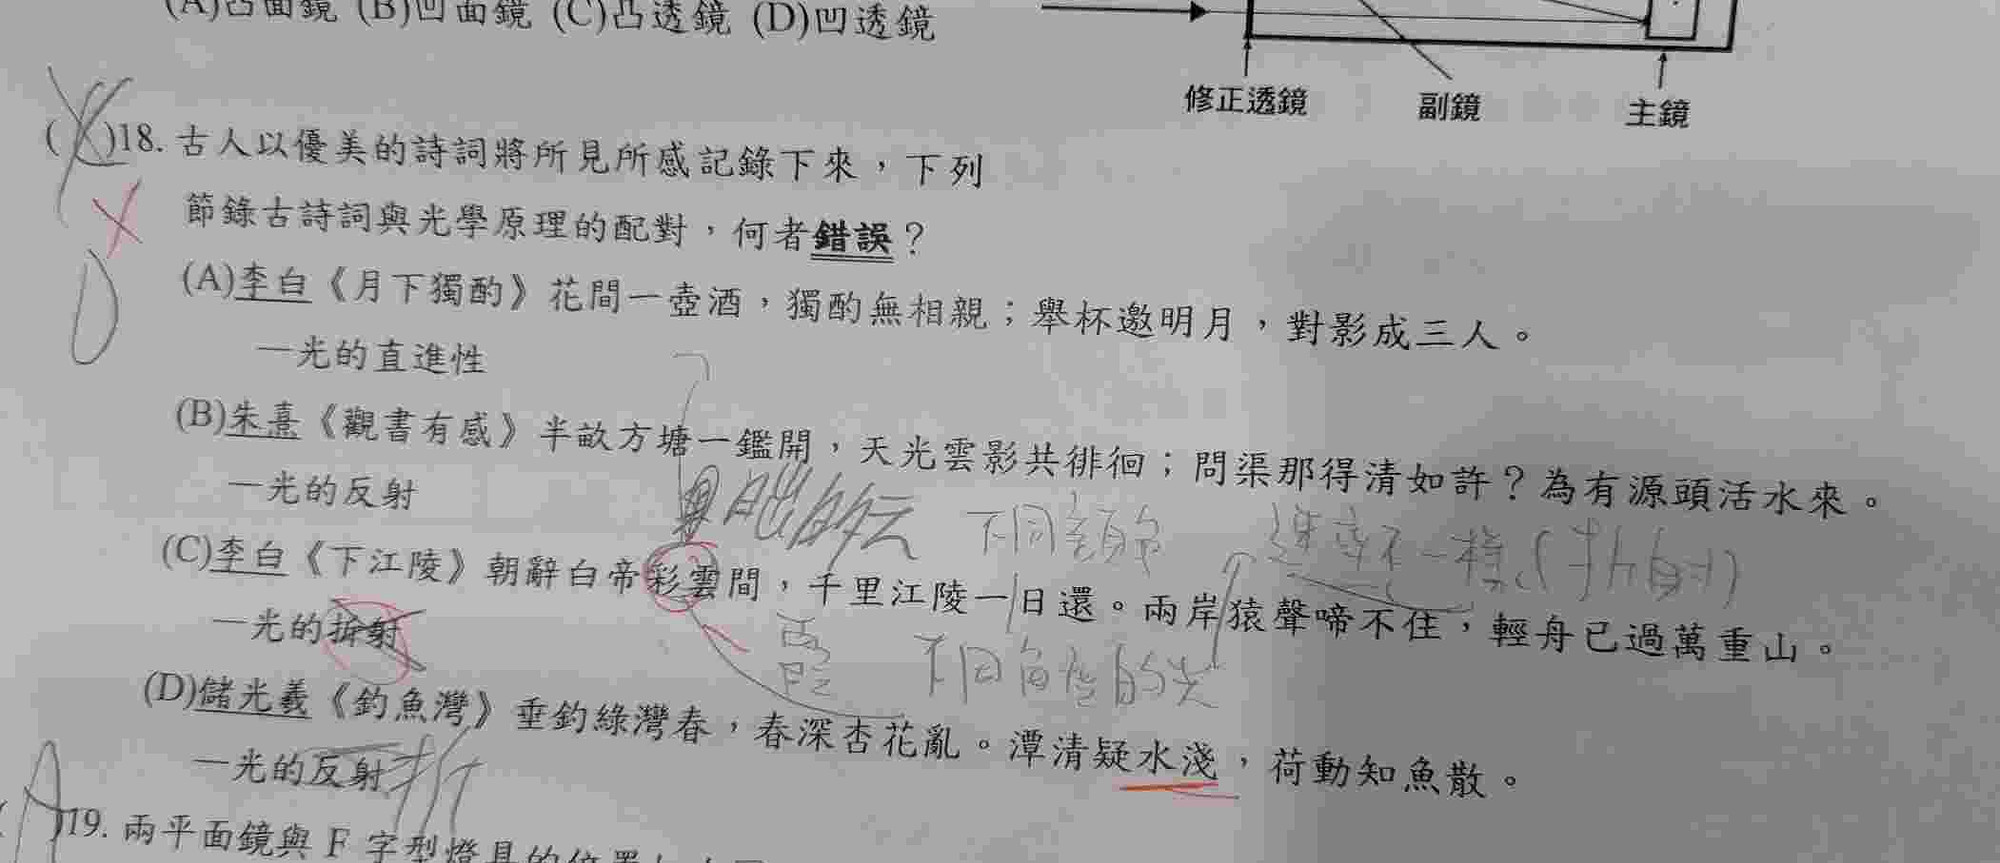 (A)凸面鏡 (B)凹面鏡 (C)凸透鏡 (D)凹透鏡
修正透鏡 副鏡 主鏡
( )18. 古人以優美的詩詞將所見所感記錄下來，下列
節錄古詩詞與光學原理的配對，何者錯誤？
D
(A)李白《月下獨酌》花間一壺酒，獨酌無相親；舉杯邀明月，對影成三人。
—光的直進性
(B)朱熹《觀書有感》半畝方塘一鑑開，天光雲影共徘徊；問渠那得清如許？為有源頭活水來。
—光的反射
不同顏色 速率不一樣(折射)
(C)李白《下江陵》朝辭白帝彩雲間，千里江陵一日還。兩岸猿聲啼不住，輕舟已過萬重山。
—光的折射
不同角度的光
(D)儲光羲《釣魚灣》垂釣綠灣春，春深杏花亂。潭清疑水淺，荷動知魚散。
—光的反射 折
A
( )19. 兩平面鏡與 F 字型燈具的位置